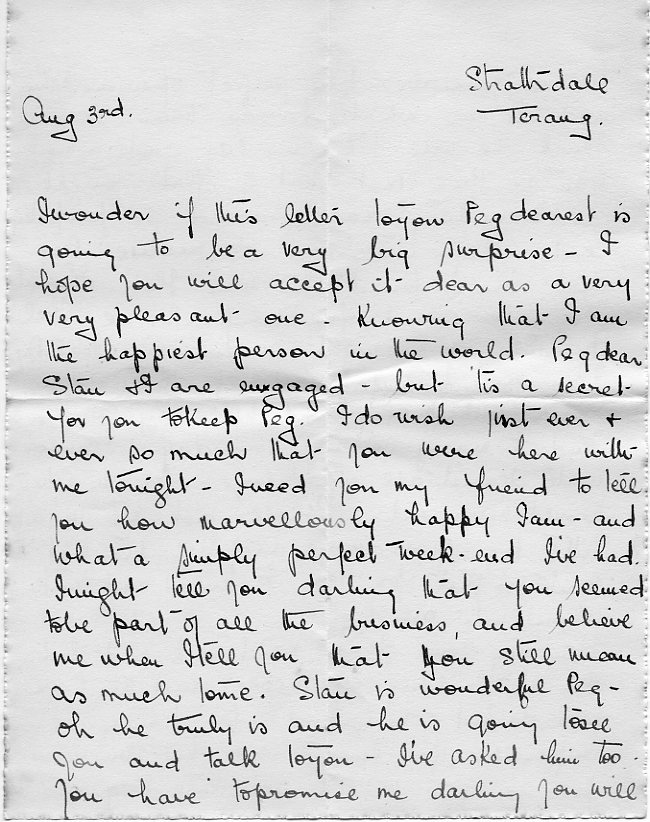 Strathdale
Aug 3rd.
Terang.
I wonder if this letter to you Peg dearest is
going to be a very big surprise - I
hope you will accept it dear as a very
very pleasant one. Knowing that I am
the happiest person in the world. Peg dear
Stan & I are engaged - but 'tis a secret
for you to keep Peg. I do wish just ever &
ever so much that you were here with
me tonight - I need you my friend to tell
you how marvellously happy I am - and
what a simply perfect week-end I've had.
I might tell you darling that you seemed
to be part of all the business, and believe
me when I tell you that you still mean
as much to me. Stan is wonderful Peg -
oh he truly is and he is going to see
you and talk to you - I've asked him too.
You have to promise me darling you will